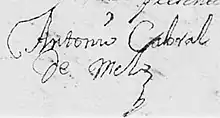 Antonio Cabral
de Melo